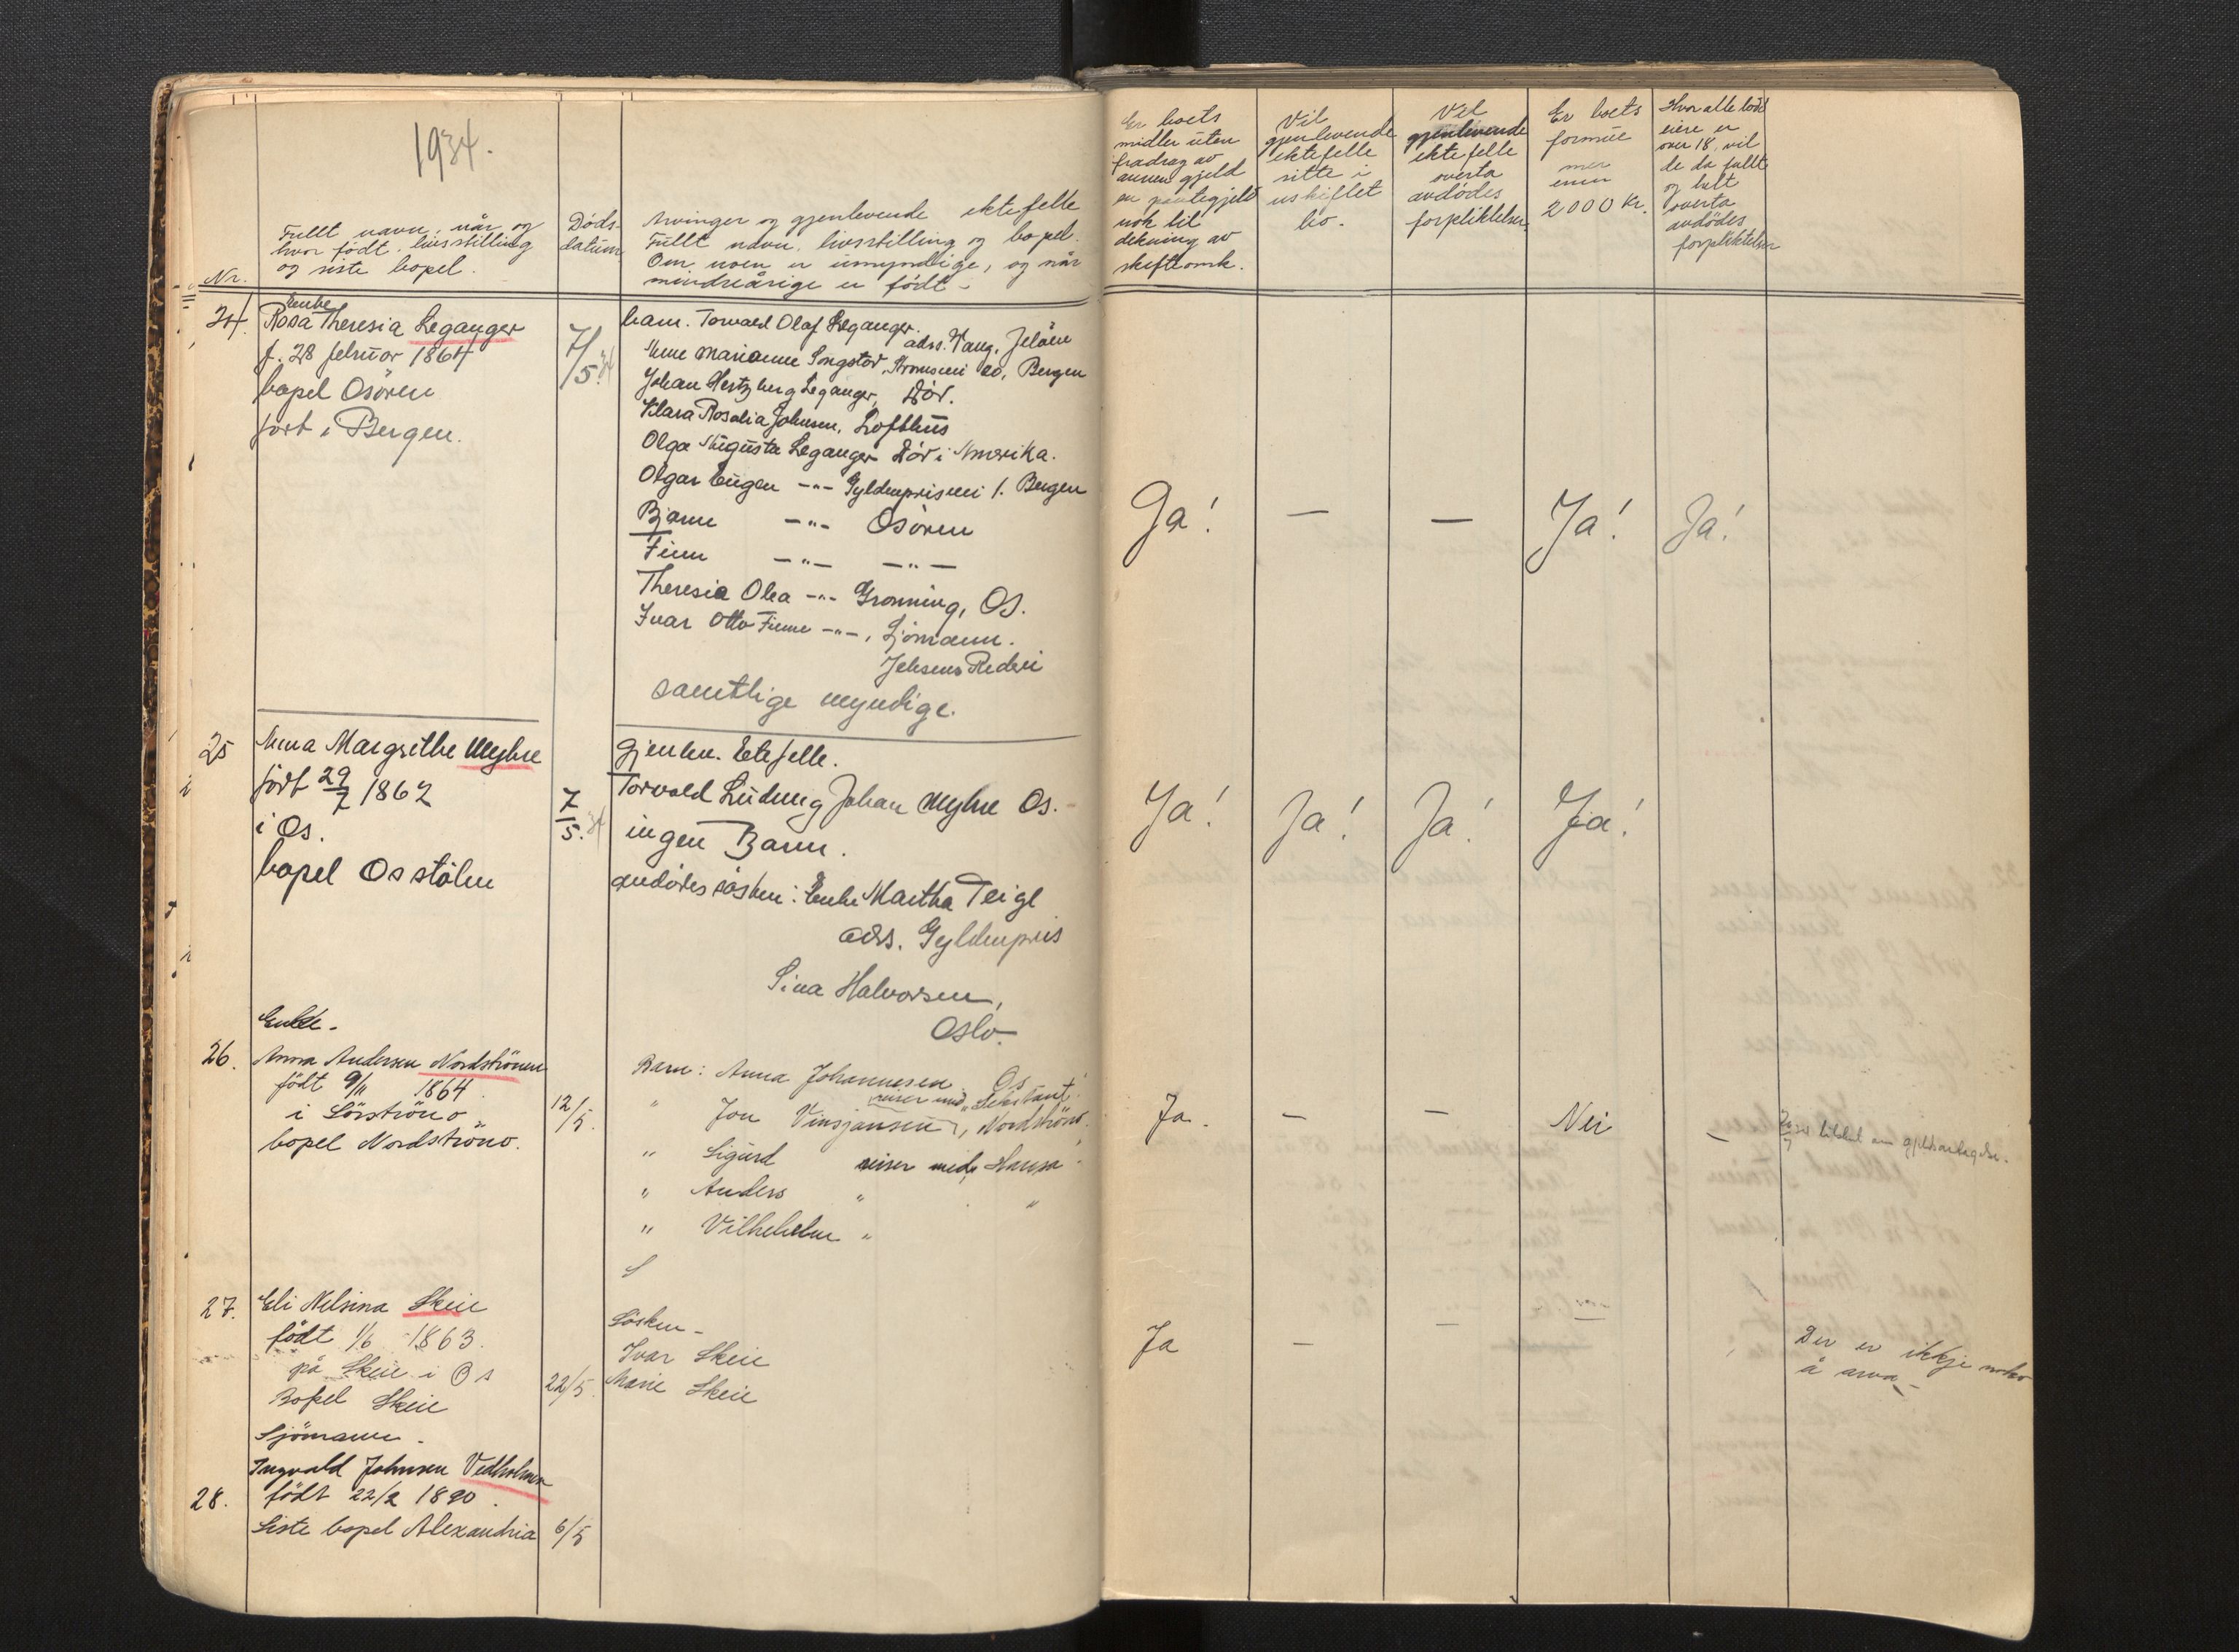 1934.
Nr.
Fullt navn, når og
hvor født, livsstilling
og siste bopel.
Døds-
datum
Arvinger og gjenlevende ektefelle
Fullt navn, livsstilling og bopel.
Om noen er umyndige, og når
mindreårige er født -
24.
Enke
Rosa Theresia Leganger
f. 28 februar 1864
bopel Osören
fört i Bergen.
7/5. 34
barn. Torvald Olaf Leganger.
adrs. Vang, Jelöen
Anne Marianne Songstad, 20, Bergen
Johan Hertzberg Leganger, Död.
Klara Rosalia Johnsen, Lofthus
Olga Augusta Leganger Död i Amerika.
Olgar Eugen -"- Gyldenprisvei 1. Bergen
Bjarne -"- Osören
Finn -"- -"-
Theresia Olea -"- Grönning, Os.
Ivar Otto Finne -"-, Sjömann.
Jebsens Rederi
samtlige myndige.
25
Anna Margrethe Myhre
fört 29/7 1862
i Os.
bopel Osstölen
7/5. 34
gjenlev. Ektefelle.
Torvald Ludvig Johan Myhre Os.
ingen Barn.
avdödes søsken: Enke Martha Teigl
adrs. Gyldenpris
Sina Halvorsen,
Oslo.
Enke -
26.
Anna Andersen Nordströnen
født 9/11 1864
i Sörströno
bopel Nordströno.
12/5.
Barn: Anna Johannesen Os
reiser med
" Jon Vinsjansen, Nordströno.
" Sigurd reiser med "Hansa"
" Anders " "
" Vilhelm "
27.
Eli Nilsina Skeie
født 1/6 1863.
på Skeie i Os
Bopel Skeie
22/5.
Søsken -
Ivar Skeie
Marie Skeie
Sjömann -
28.
Ingvald Johnsen Vedholmen
født 22/2 1890.
Siste bopel Alexandria
6/5
Er boets
midler uten
fradrag av
annen gjeld
en pantegjeld
nok til
dekning av
skifteomk.
Vil
gjenlevende
ektefelle
sitte i
uskiftet
bo.
Vil
gjenlevende
ektefelle
overta
avdødes
forpliktelser
Er boets
formue
mer
enn
2000 Kr.
Hvor alle lodd
eiere er
over 18, vil
de da fullt
og helt
overta
avdødes
forpliktelser
Ja! - - Ja! Ja!
Ja! Ja! Ja! Ja!
Ja. - - Nei -
Ja - -
Der er ikkje noko
å arva -